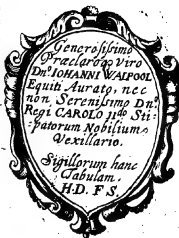 Generosissimo
Præclaroq; viro
Dno. IOHANNI WALPOOL
Equiti Aurato, nec
non Serenissimo Dno.
Regi CAROLO IIdo. Sti-
patorum Nobilium
Vexillario.
Sigillorum hanc
Tabulam
H.D.F S.